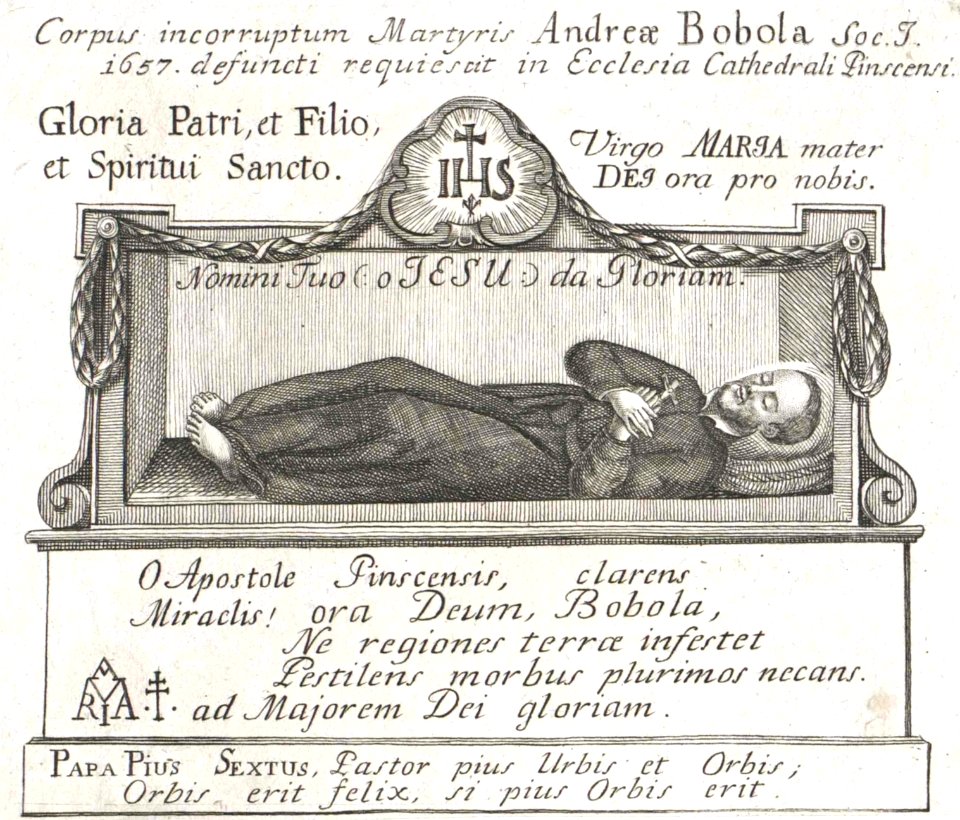 Corpus incorruptum Martyris Andreæ Bobola Soc. J.
1657. defuncti requiescit in Ecclesia Cathedrali Pinscensi.
Gloria Patri, et Filio,
et Spiritui Sancto.
IHS
Virgo MARIA mater
DEI ora pro nobis.
Nomini Tuo (: o JESU :) da Gloriam.
O Apostole Pinscensis, clarens
Miraclis! ora Deum, Bobola,
Ne regiones terræ infestet
Pestilens morbus plurimos necans.
ad Majorem Dei gloriam.
PAPA PIUS SEXTUS, Pastor pius Urbis et Orbis;
Orbis erit felix, si pius Orbis erit.